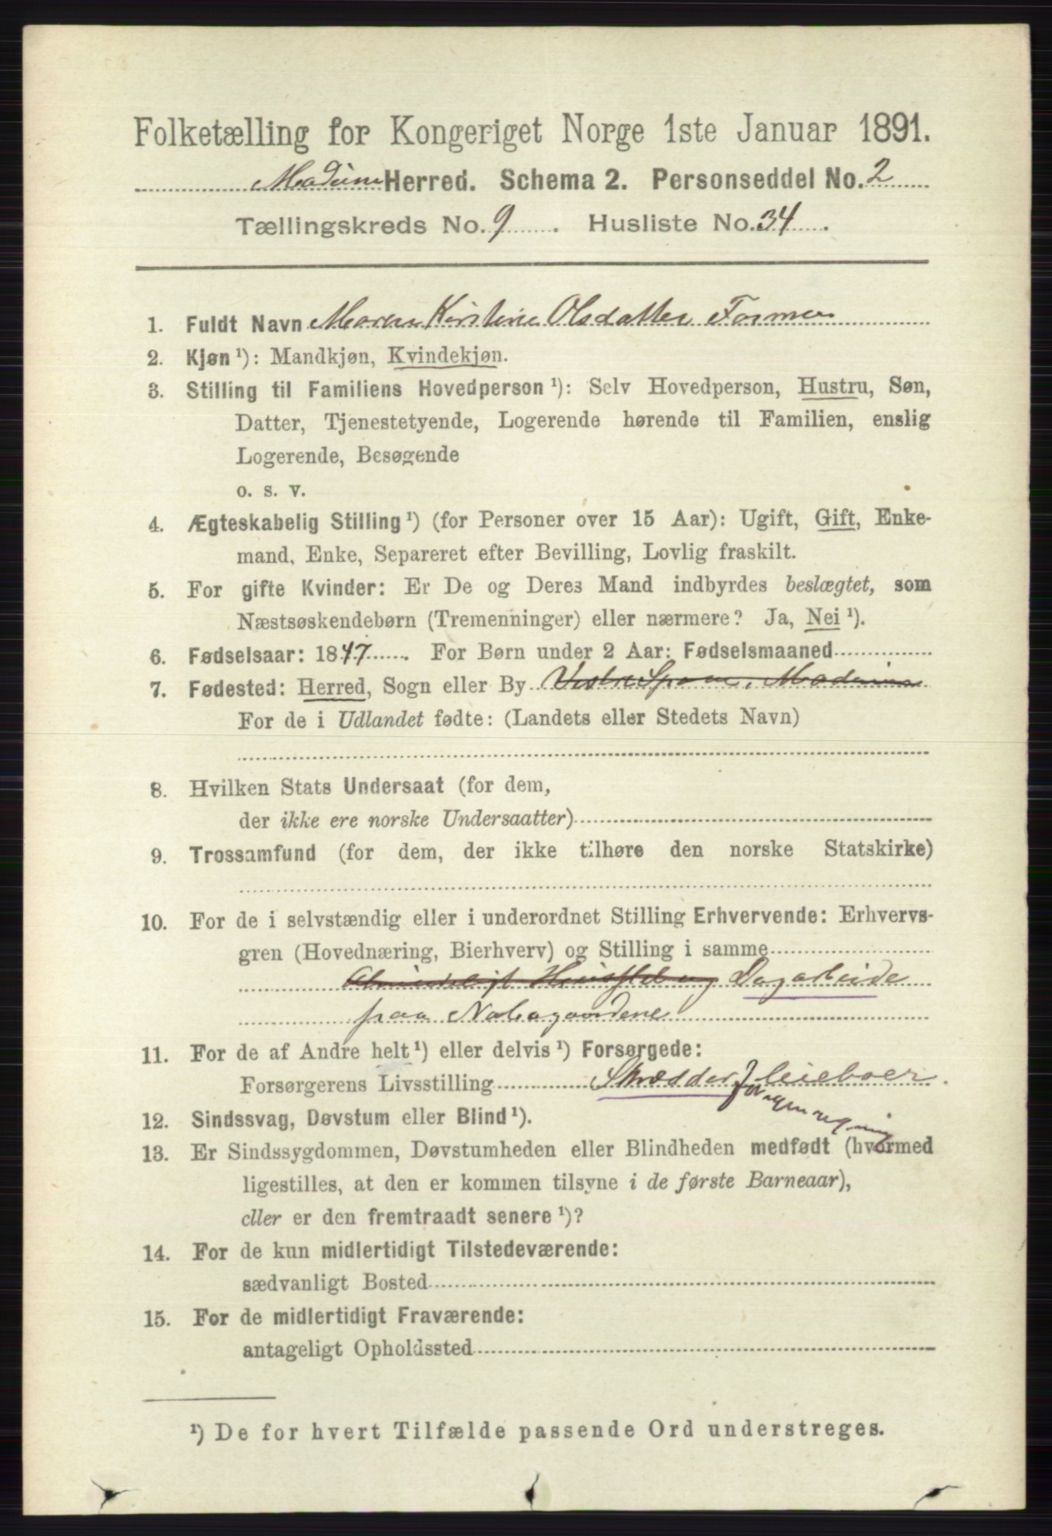 Folketælling for Kongeriget Norge 1ste Januar 1891.
Herred. Schema 2. Personseddel No. 2
Tællingskreds No. 9. Husliste No. 34.
1. Fuldt Navn Maren Kirstine Olsdatter
2. Kjøn ¹): Mandkjøn, Kvindekjøn.
3. Stilling til Familiens Hovedperson ¹): Selv Hovedperson, Hustru, Søn,
Datter, Tjenestetyende, Logerende hørende til Familien, enslig
Logerende, Besøgende
o. s. v.
4. Ægteskabelig Stilling ¹) (for Personer over 15 Aar): Ugift, Gift, Enke-
mand, Enke, Separeret efter Bevilling, Lovlig fraskilt.
5. For gifte Kvinder: Er De og Deres Mand indbyrdes beslægtet, som
Næstsøskendebørn (Tremenninger) eller nærmere? Ja, Nei ¹).
6. Fødselsaar: 1847. For Børn under 2 Aar: Fødselsmaaned
7. Fødested: Herred, Sogn eller By
For de i Udlandet fødte: (Landets eller Stedets Navn)
8. Hvilken Stats Undersaat (for dem,
der ikke ere norske Undersaatter)
9. Trossamfund (for dem, der ikke tilhøre den norske Statskirke)
10. For de i selvstændig eller i underordnet Stilling Erhvervende: Erhvervs-
gren (Hovednæring, Bierhverv) og Stilling i samme
Dagarbeide
paa Nabogaardene
11. For de af Andre helt ¹) eller delvis ¹) Forsørgede:
Forsørgerens Livsstilling Skrædder leieboer.
for egen regning
12. Sindssvag, Døvstum eller Blind ¹).
13. Er Sindssygdommen, Døvstumheden eller Blindheden medfødt (hvormed
ligestilles, at den er kommen tilsyne i de første Barneaar),
eller er den fremtraadt senere ¹)?
14. For de kun midlertidigt Tilstedeværende:
sædvanligt Bosted
15. For de midlertidigt Fraværende:
antageligt Opholdssted
¹) De for hvert Tilfælde passende Ord understreges.